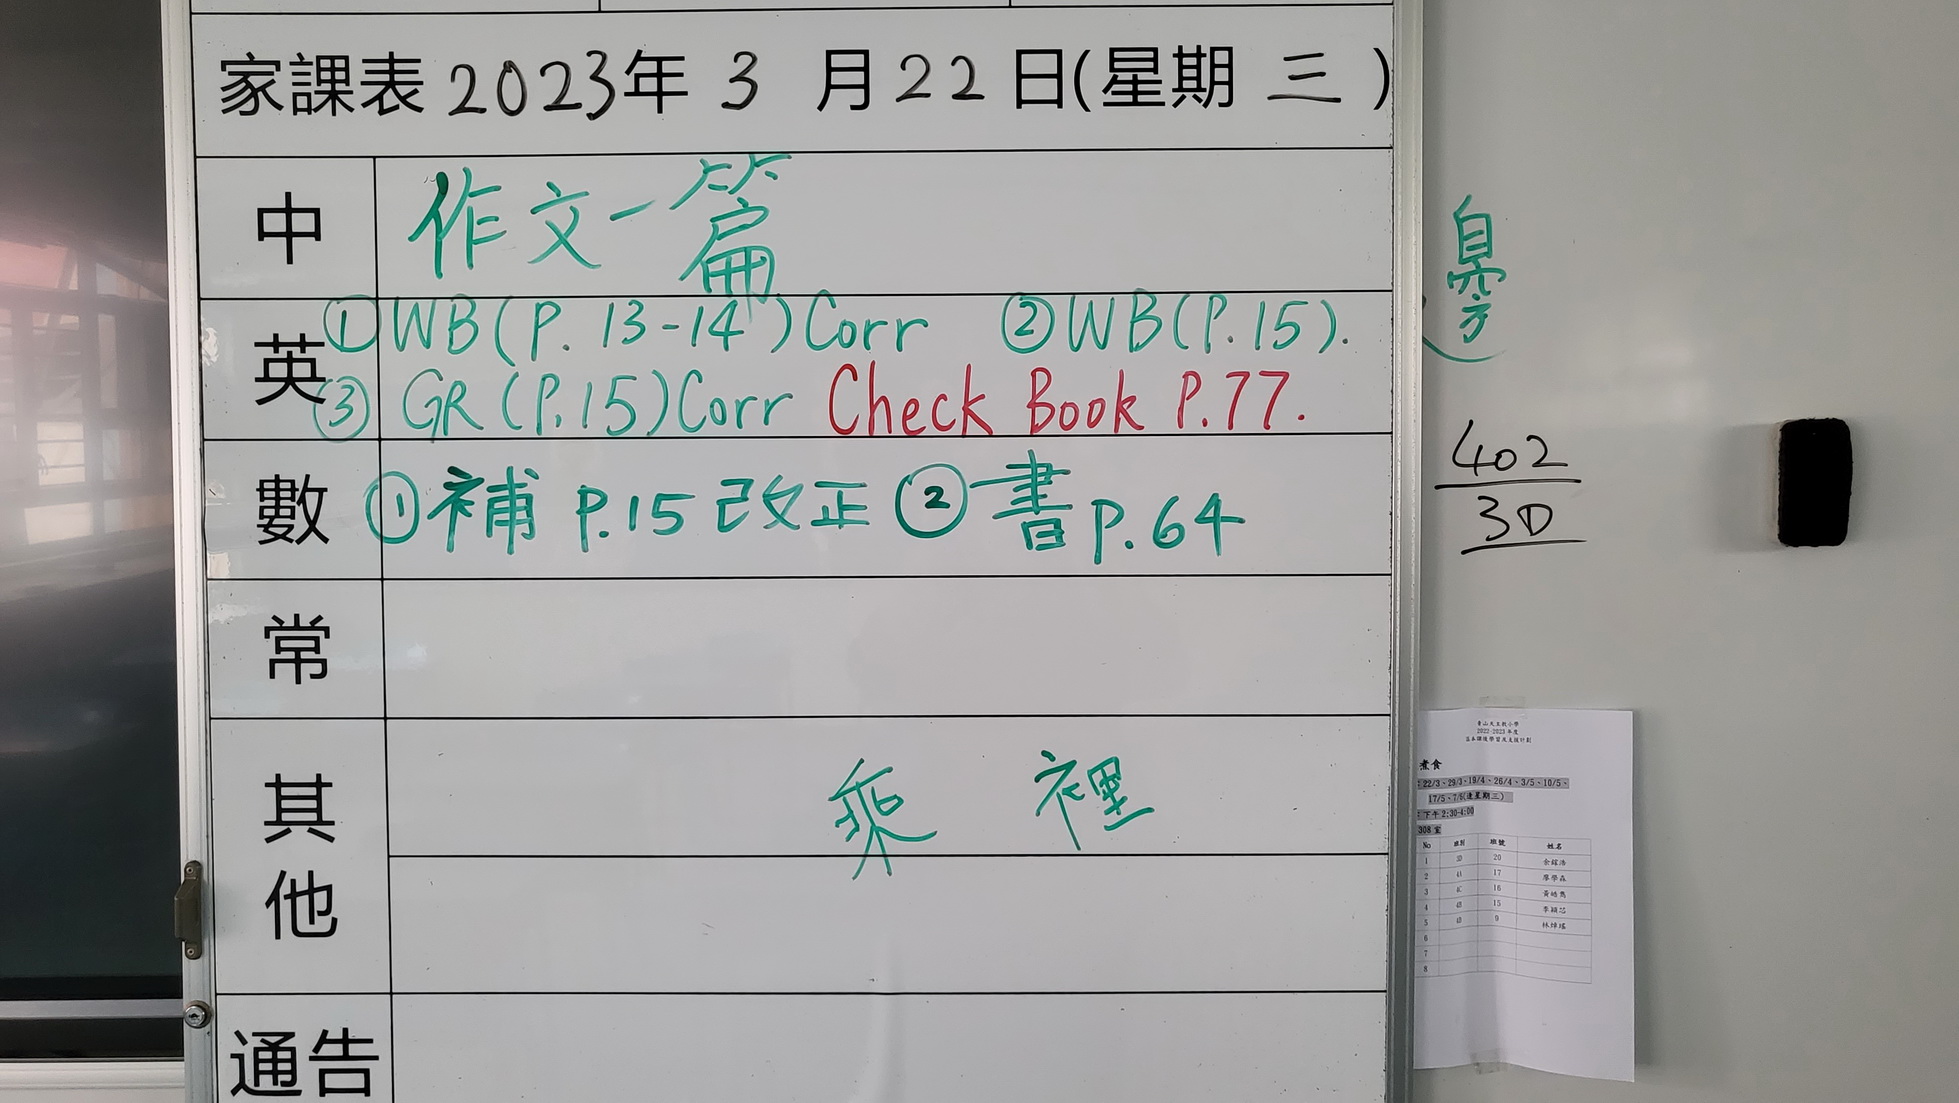 家課表 2023年 3 月 22 日(星期 三 )
中 作文一篇
英 ①WB(P. 13-14)Corr ②WB(P.15).
③ GR (P.15)Corr Check Book P.77.
數 ①補 P.15 改正 ②書 P.64
常
其他
乘 裡
通告
邊
402
3D
青山天主教小學
2022-2023年度
區本課後學習及支援計劃
煮食
: 22/3、29/3、19/4、26/4、3/5、10/5、
17/5、7/6(逢星期三)
下午 2:30-4:00
308 室
No 班別 班號 姓名
1 3D 20
2 4A 17 廖學森
3 4C 16
4 4D 15
5 9
6
7
8